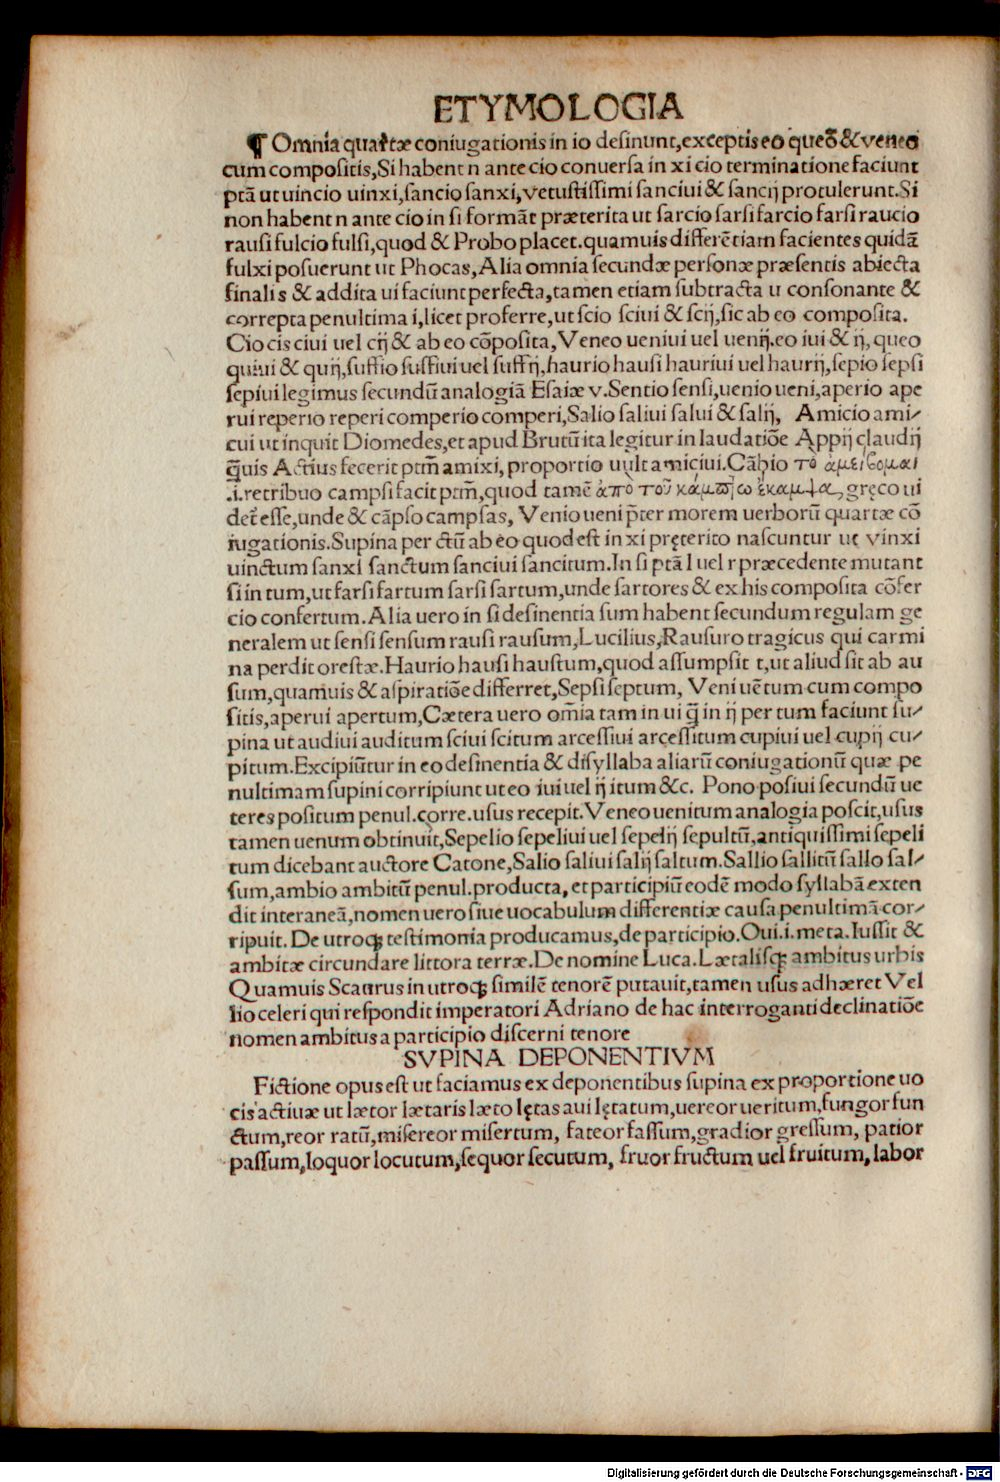 ETYMOLOGIA
¶ Omnia quartæ coniugationis in io desinunt,exceptis eo queō & veneo
cum compositis,Si habent n ante cio conuersa in xi cio terminatione faciunt
ptā ut uincio uinxi,sancio sanxi,vetustissimi sanciui & sancij protulerunt.Si
non habent n ante cio in si formāt præterita ut sarcio sarsi farcio farsi raucio
rausi fulcio fulsi,quod & Probo placet.quamuis differētiam facientes quidā
fulxi posuerunt ut Phocas,Alia omnia secundæ personæ præsentis abiecta
finali s & addita ui faciunt perfecta,tamen etiam subtracta u consonante &
correpta penultima i,licet proferre,ut scio sciui & scij,sic ab eo composita.
Cio cis ciui uel cij & ab eo cōposita,Veneo ueniui uel uenij.eo iui & ij,queo
quiui & quij,suffio suffiui uel suffij,haurio hausi hauriui uel haurij,sepio sepsi
sepiui legimus secundū analogiā Esaiæ v.Sentio sensi,uenio ueni,aperio ape
rui reperio reperi comperio comperi,Salio saliui salui & salij, Amicio ami/
cui ut inquit Diomedes,et apud Brutū ita legitur in laudatiōe Appij claudij
q̄uis Actius fecerit ptm̄ amixi,proportio uult amiciui.Cābio τὸ ἀμείβομαι
.i.retribuo campsi facit ptm̄,quod tamē ἀπὸ τοῦ κάμπτω ἔκαμψα,gręco ui
det̄ esse,unde & cāpso campsas, Venio ueni p̄ter morem uerborū quartæ cō
iugationis.Supina per ctū ab eo quod est in xi pręterito nascuntur ut vinxi
uinctum sanxi sanctum sanciui sancitum.In si ptā l uel r præcedente mutant
si in tum,ut farsi fartum sarsi sartum,unde sartores & ex his composita cōfer
cio confertum.Alia uero in si desinentia sum habent secundum regulam ge
neralem ut sensi sensum rausi rausum,Lucilius,Rausuro tragicus qui carmi
na perdit orestæ.Haurio hausi haustum,quod assumpsit t,ut aliud sit ab au
sum,quamuis & aspiratiōe differret,Sepsi septum, Veni uētum cum compo
sitis,aperui apertum,Cætera uero om̄ia tam in ui q̄ in ij per tum faciunt su/
pina ut audiui auditum sciui scitum arcessiui arcessitum cupiui uel cupij cu/
pitum.Excipiūtur in eo desinentia & disyllaba aliarū coniugationū quæ pe
nultimam supini corripiunt ut eo iui uel ij itum &c. Pono posiui secundū ue
teres positum penul.corre.usus recepit.Veneo uenitum analogia poscit,usus
tamen uenum obtinuit,Sepelio sepeliui uel sepelij sepultū,antiquissimi sepeli
tum dicebant auctore Catone,Salio saliui salij saltum.Sallio sallitū sallo sal/
sum,ambio ambitū penul.producta, et participiū eodē modo syllabā exten
dit interaneā,nomen uero siue uocabulum differentiæ causa penultimā cor/
ripuit. De utroq; testimonia producamus,de participio.Oui.i.meta.Iussit &
ambitæ circundare littora terræ.De nomine Luca.Lætalisq; ambitus urbis
Quamuis Scaurus in utroq; similē tenorē putauit,tamen usus adhæret Vel
lio celeri qui respondit imperatori Adriano de hac interroganti declinatiōe
nomen ambitus a participio discerni tenore
SVPINA DEPONENTIVM
Fictione opus est ut faciamus ex deponentibus supina ex proportione uo
cis actiuæ ut lætor lætaris læto lętas aui lętatum,uereor ueritum,fungor fun
ctum,reor ratū,misereor misertum, fateor fassum,gradior gressum, patior
passum,loquor locutum,sequor secutum, fruor fructum uel fruitum, labor
Digitalisierung gefördert durch die Deutsche Forschungsgemeinschaft - DFG